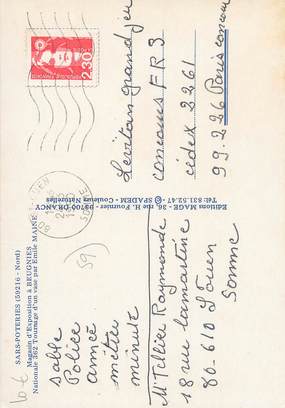 SARS-POTERIES (59216 - Nord)
Magasin d'Exposition à BEUGNIES
Nationale 362 Tournage d'un vase par Emile MAINE
59)
sable
Police
Armée
métier
minute
Editions MAGE - 36, rue H. Fournier - 93700 DRANCY
Tél: 831.52.47 - SPADEM - Couleurs Naturelles
2,30
Levitan grand jeu
concours FR3
cédex 2261
99-226 Paris concours
M Tellier Raymonde
18 rue lamartine
80-610 St Ouen
Somme